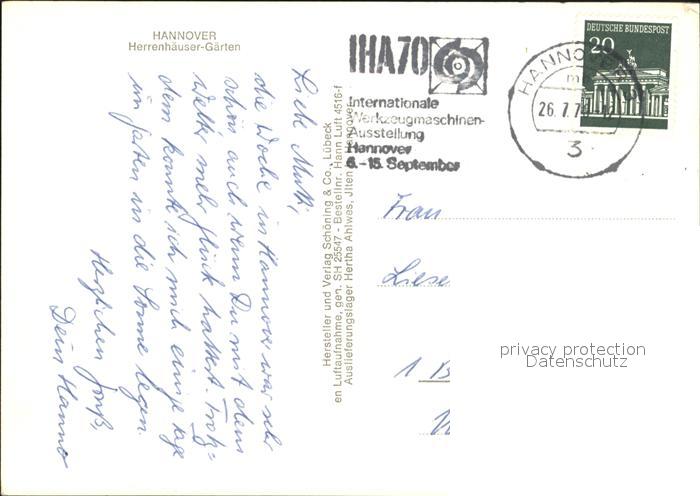 HANNOVER
Herrenhäuser-Gärten
Liebe Mutti,
die Woche in Hannover war sehr
schön auch wenn Du mit dem
Wetter mehr Glück hattest. Trotz=
dem konnte ich mich einige Tage
im Garten in die Sonne legen.
Herzlichen Gruß,
Dein Hanno
Hersteller und Verlag Schöning & Co., Lübeck
en Luftaufnahme, gen. SH 25547 - Bestellnr. Hann Luft 4516-f
Auslieferungslager Hertha Ahlwes, Jlten Hannover
IHA70
Internationale
Werkzeugmaschinen-
Ausstellung
Hannover
6.-15. September
HANNOVER
26. 7. 7
3
DEUTSCHE BUNDESPOST
20
Frau
Liese
1 B
privacy protection
Datenschutz